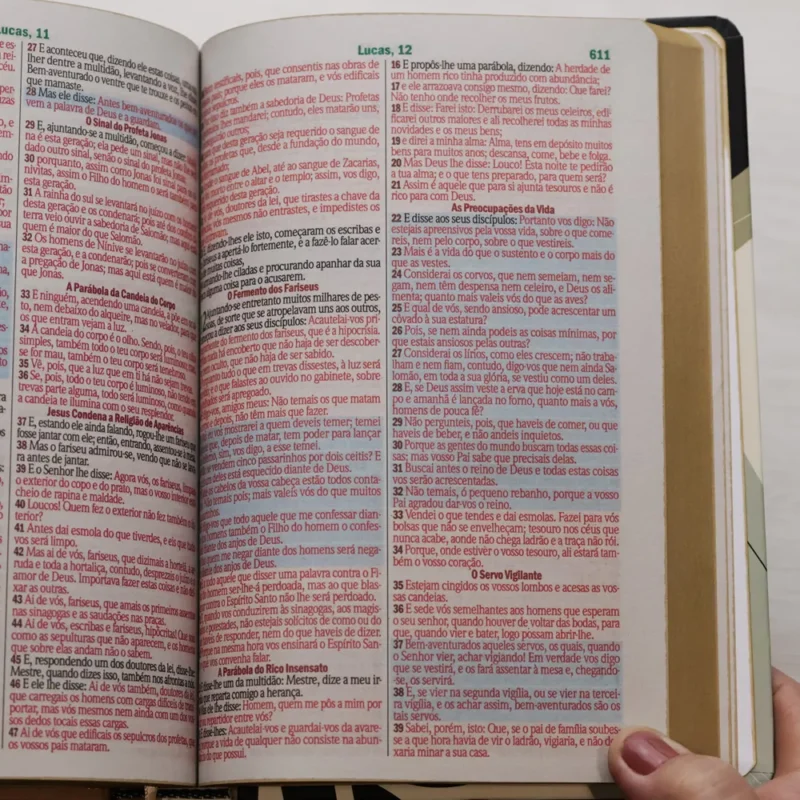 Lucas, 11
27 E aconteceu que, dizendo ele estas coisas, uma mu-
lher dentre a multidão, levantando a voz, lhe
Bem-aventurado o ventre que te trouxe e os pe
que mamaste.
28 Mas ele disse: Antes bem-aventurados os que
vem a palavra de Deus e a guardam.
O Sinal do Profeta Jonas
29 E, ajuntando-se a multidão, começou a dizer:
na é esta geração; ela pede um sinal, mas
dado outro sinal, senão o sinal do profeta Jonas
30 porquanto, assim como Jonas foi sinal para
nivitas, assim o Filho do homem o será também
esta geração.
31 A rainha do sul se levantará no juízo com os homens
desta geração e os condenará; pois até dos confins
terra veio ouvir a sabedoria de Salomão; mas aqui
quem é maior do que Salomão.
32 Os homens de Nínive se levantarão no juízo com
esta geração, e a condenarão; pois se converteram
a pregação de Jonas; mas aqui está quem é maior
que Jonas.
A Parábola da Candeia do Corpo
33 E ninguém, acendendo uma candeia, a põe em
nem debaixo do alqueire, mas no velador, para
os que entram vejam a luz.
34 A candeia do corpo é o olho. Sendo, pois, o olho
simples, também todo o teu corpo será luminoso;
se for mau, também o teu corpo será tenebroso.
35 Vê, pois, que a luz que em ti há não sejam trevas.
36 Se, pois, todo o teu corpo é luminoso, não tendo
trevas parte alguma, todo será luminoso, como quando
a candeia te ilumina com o seu resplendor.
Jesus Condena a Religião de Aparências
37 E, estando ele ainda falando, rogou-lhe um fariseu que
fosse jantar com ele; então, entrando, assentou-se à mesa.
38 Mas o fariseu admirou-se, vendo que não se lava-
ra antes de jantar.
39 E o Senhor lhe disse: Agora vós, os fariseus, limpais
o exterior do copo e do prato, mas o vosso interior está
cheio de rapina e maldade.
40 Loucos! Quem fez o exterior não fez também o in-
terior?
41 Antes dai esmola do que tiverdes, e eis que tudo
vos será limpo.
42 Mas ai de vós, fariseus, que dizimais a hortelã, a ar-
ruda e toda a hortaliça, contudo, desprezais o juízo e o
amor de Deus. Importava fazer estas coisas e não dei-
xar as outras.
43 Ai de vós, fariseus, que amais os primeiros assentos
nas sinagogas e as saudações nas praças.
44 Ai de vós, escribas e fariseus, hipócritas! Que sois
como as sepulturas que não aparecem, e os homens
que sobre elas andam não o sabem.
45 E, respondendo um dos doutores da lei, disse-lhe:
Mestre, quando dizes isso, também nos afrontas a nós.
46 E ele lhe disse: Ai de vós também, doutores da lei,
que carregais os homens com cargas difíceis de trans-
portar, mas vós mesmos nem ainda com um dos vos-
sos dedos tocais essas cargas.
47 Ai de vós que edificais os sepulcros dos profetas, que
os vossos pais mataram.
Lucas, 12
611
testificais, pois, que consentis nas obras de
porque eles os mataram, e vós edificais
sepulcros.
diz também a sabedoria de Deus: Profetas
lhes mandarei; contudo, eles matarão uns,
outros;
que desta geração seja requerido o sangue de
profetas que, desde a fundação do mundo,
sangue de Abel, até ao sangue de Zacarias,
morto entre o altar e o templo; assim, vos digo,
requerido desta geração.
vós, doutores da lei, que tirastes a chave da
vós mesmos não entrastes, e impedistes os
dizendo-lhes ele isto, começaram os escribas e
a apertá-lo fortemente, e a fazê-lo falar acer-
muitas coisas,
armando-lhe ciladas e procurando apanhar da sua
alguma coisa para o acusarem.
O Fermento dos Fariseus
Ajuntando-se entretanto muitos milhares de pes-
soas, de sorte que se atropelavam uns aos outros,
a dizer aos seus discípulos: Acautelai-vos pri-
do fermento dos fariseus, que é a hipocrisia.
há encoberto que não haja de ser descober-
oculto, que não haja de ser sabido.
tudo o que em trevas dissestes, à luz será
que falastes ao ouvido no gabinete, sobre
será apregoado.
vos, amigos meus: Não temais os que matam
e depois, não têm mais que fazer.
vos mostrarei a quem deveis temer; temei
que, depois de matar, tem poder para lançar
sim, vos digo, a esse temei.
se vendem cinco passarinhos por dois ceitis? E
deles está esquecido diante de Deus.
os cabelos da vossa cabeça estão todos conta-
temais pois; mais valeis vós do que muitos
digo-vos que todo aquele que me confessar dian-
homens também o Filho do homem o confes-
diante dos anjos de Deus.
quem me negar diante dos homens será nega-
dos anjos de Deus.
todo aquele que disser uma palavra contra o Fi-
homem ser-lhe-á perdoada, mas ao que blas-
contra o Espírito Santo não lhe será perdoado.
quando vos conduzirem às sinagogas, aos magis-
potestades, não estejais solícitos de como ou do
de responder, nem do que haveis de dizer.
na mesma hora vos ensinará o Espírito San-
vos convenha falar.
A Parábola do Rico Insensato
disse-lhe um da multidão: Mestre, dize a meu ir-
que reparta comigo a herança.
ele lhe disse: Homem, quem me pôs a mim por
repartidor entre vós?
disse-lhes: Acautelai-vos e guardai-vos da avare-
porque a vida de qualquer não consiste na abun-
do que possui.
16 E propôs-lhe uma parábola, dizendo: A herdade de
um homem rico tinha produzido com abundância;
17 e ele arrazoava consigo mesmo, dizendo: Que farei?
Não tenho onde recolher os meus frutos.
18 E disse: Farei isto: Derrubarei os meus celeiros, edi-
ficarei outros maiores e ali recolherei todas as minhas
novidades e os meus bens;
19 e direi a minha alma: Alma, tens em depósito muitos
bens para muitos anos; descansa, come, bebe e folga.
20 Mas Deus lhe disse: Louco! Esta noite te pedirão
a tua alma; e o que tens preparado, para quem será?
21 Assim é aquele que para si ajunta tesouros e não é
rico para com Deus.
As Preocupações da Vida
22 E disse aos seus discípulos: Portanto vos digo: Não
estejais apreensivos pela vossa vida, sobre o que come-
reis, nem pelo corpo, sobre o que vestireis.
23 Mais é a vida do que o sustento e o corpo mais do
que as vestes.
24 Considerai os corvos, que nem semeiam, nem se-
gam, nem têm despensa nem celeiro, e Deus os ali-
menta; quanto mais valeis vós do que as aves?
25 E qual de vós, sendo ansioso, pode acrescentar um
côvado à sua estatura?
26 Pois, se nem ainda podeis as coisas mínimas, por
que estais ansiosos pelas outras?
27 Considerai os lírios, como eles crescem; não traba-
lham e nem fiam, contudo, digo-vos que nem ainda Sa-
lomão, em toda a sua glória, se vestiu como um deles.
28 E, se Deus assim veste a erva que hoje está no cam-
po e amanhã é lançada no forno, quanto mais a vós,
homens de pouca fé?
29 Não pergunteis, pois, que haveis de comer, ou que
haveis de beber, e não andeis inquietos.
30 Porque as gentes do mundo buscam todas essas coi-
sas; mas vosso Pai sabe que precisais delas.
31 Buscai antes o reino de Deus e todas estas coisas
vos serão acrescentadas.
32 Não temais, ó pequeno rebanho, porque a vosso
Pai agradou dar-vos o reino.
33 Vendei o que tendes e dai esmolas. Fazei para vós
bolsas que não se envelheçam; tesouro nos céus que
nunca acabe, aonde não chega ladrão e a traça não rói.
34 Porque, onde estiver o vosso tesouro, ali estará tam-
bém o vosso coração.
O Servo Vigilante
35 Estejam cingidos os vossos lombos e acesas as vos-
sas candeias.
36 E sede vós semelhantes aos homens que esperam
o seu senhor, quando houver de voltar das bodas, para
que, quando vier e bater, logo possam abrir-lhe.
37 Bem-aventurados aqueles servos, os quais, quando
o Senhor vier, achar vigiando! Em verdade vos digo
que se vestirá, e os fará assentar à mesa e, chegando-
-se, os servirá.
38 E, se vier na segunda vigília, ou se vier na tercei-
ra vigília, e os achar assim, bem-aventurados são os
tais servos.
39 Sabei, porém, isto: Que, se o pai de família soubes-
se a que hora havia de vir o ladrão, vigiaria, e não de
xaria minar a sua casa.